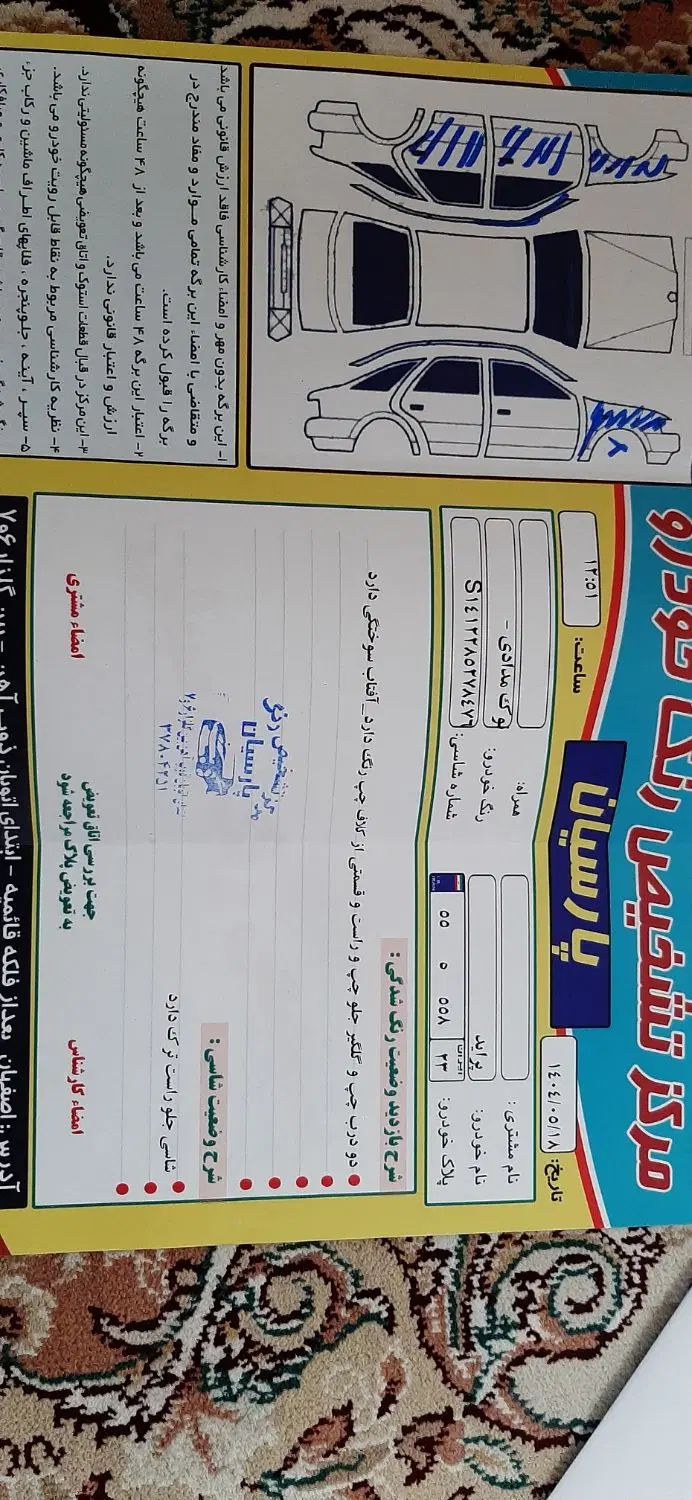 مرکز تشخیص رنگ خودرو
پارسیان
تاریخ: ۱۴۰۴/۰۵/۱۸
ساعت: ۱۲:۵۱
نام مشتری:
همراه:
نام خودرو: پراید
رنگ خودرو: نوک مدادی -
پلاک خودرو: ۵۵ ۵ ۵۵۸ ایران ۲۳
شماره شاسی: S۱۴۱۲۲۸۵۲۷۸۴۷۹
شرح بازدید وضعیت رنگ شدگی:
دو درب چپ و گلگیر جلو چپ و راست و قسمتی از کلاف چپ رنگ دارد_آفتاب سوختگی دارد
شرح وضعیت شاسی:
شاسی جلو راست ترک دارد
تشخیص رنگ
پارسیان
امضاء کارشناس
جهت بررسی اتاق تعویض
به تعویض پلاک مراجعه شود
امضاء مشتری
۱- این برگه بدون مهر و امضاء کارشناسی فاقد ارزش قانونی می باشد
و متقاضی با امضاء این برگه تمامی موارد و مفاد مندرج در
برگه را قبول کرده است.
۲- اعتبار این برگه ۴۸ ساعت می باشد و بعد از ۴۸ ساعت هیچگونه
ارزش و اعتبار قانونی ندارد.
۳- این مرکز در قبال قطعات استوک و اتاق تعویضی هیچگونه مسئولیتی ندارد.
۴- نظریه کارشناسی مربوط به نقاط قابل رویت خودرو می باشد.
۵- سپر، آینه، جلوپنجره، قابهای اطراف ماشین و رکاب جزء
آدرس: اصفهان بعد از فلکه قائمیه - ابتدای اتوبان ذوب آهن - بین گلزار ۷۰۶